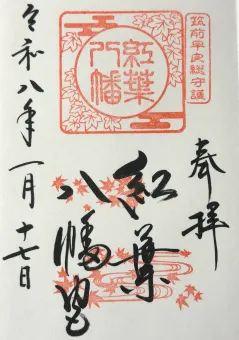 筑前平安総守護
奉拝
紅葉
八幡
紅葉
八幡宮
令和八年一月十七日